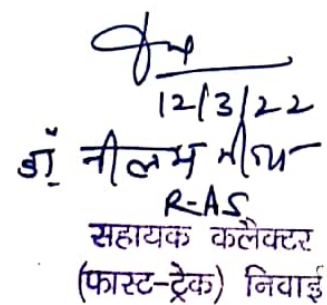 12/3/22
डॉ. नीलम मीणा
RAS
सहायक कलैक्टर
(फास्ट-ट्रेक) निवाई